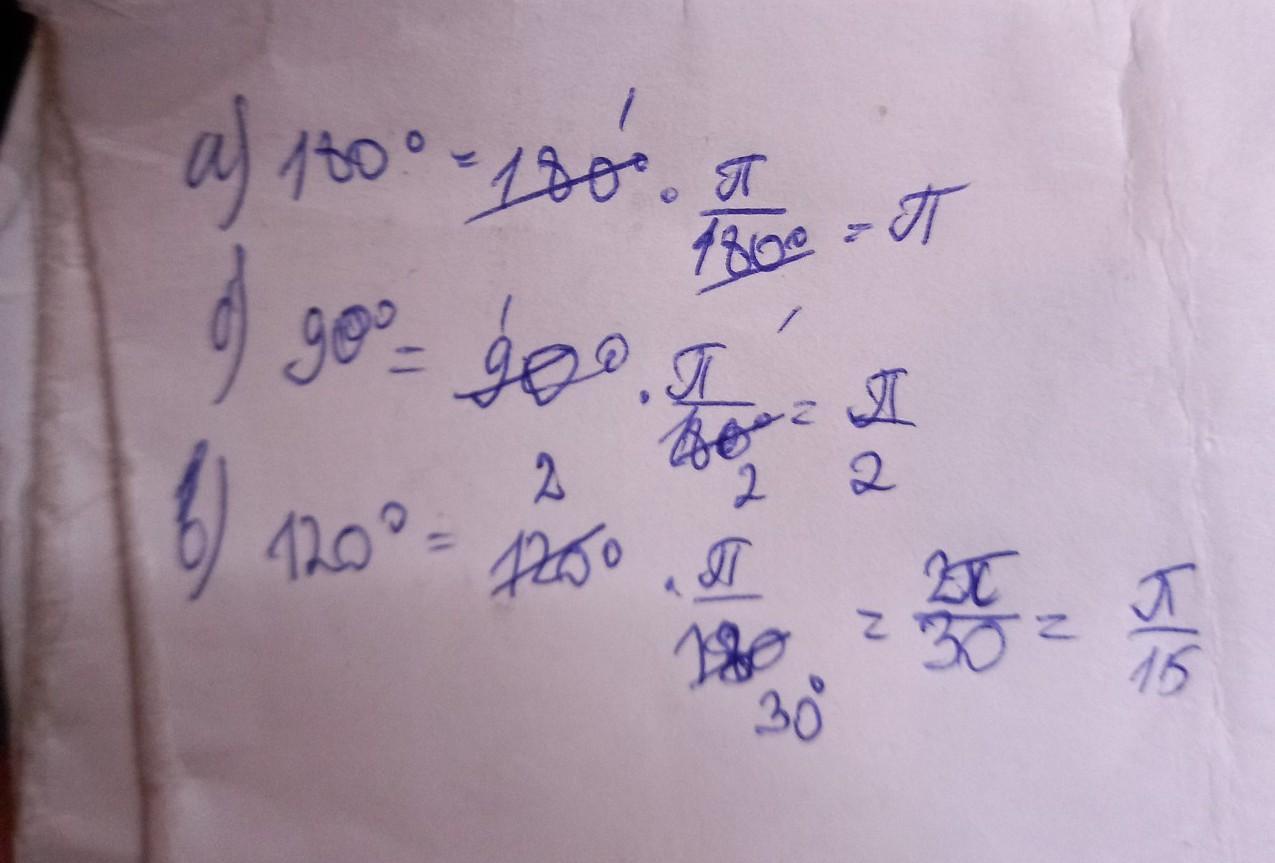 а) 180° = 180° · π/180° = π
б) 90° = 90° · π/180° = π/2
в) 120° = 120° · π/180 = 2π/30 = π/15